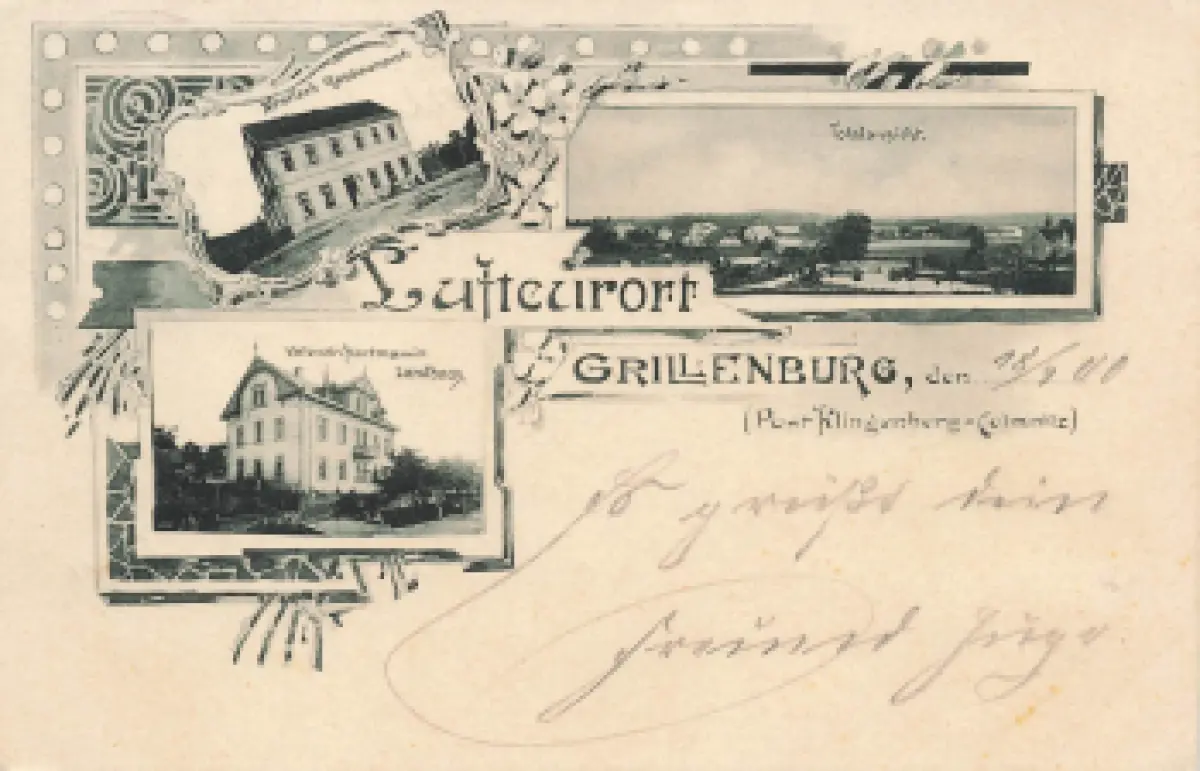 Totalansicht.
Luftcurort
Landhaus.
GRILLENBURG, den 18/9 00
(Post Klingenberg-Colmnitz)
Es grüßt dein
Freund Hugo.